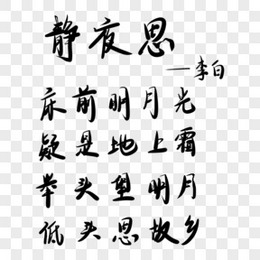 静夜思
——李白
床前明月光
疑是地上霜
举头望明月
低头思故乡